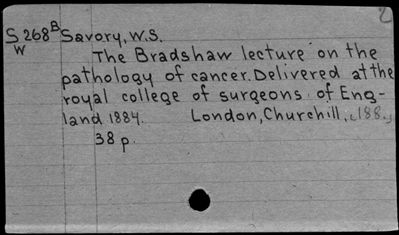 S 268 B Savory, W.S.
W
The Bradshaw lecture on the
pathology of cancer. Delivered at the
royal college of surgeons of Eng-
land 1884. London, Churchill, c188.
38 p.
2